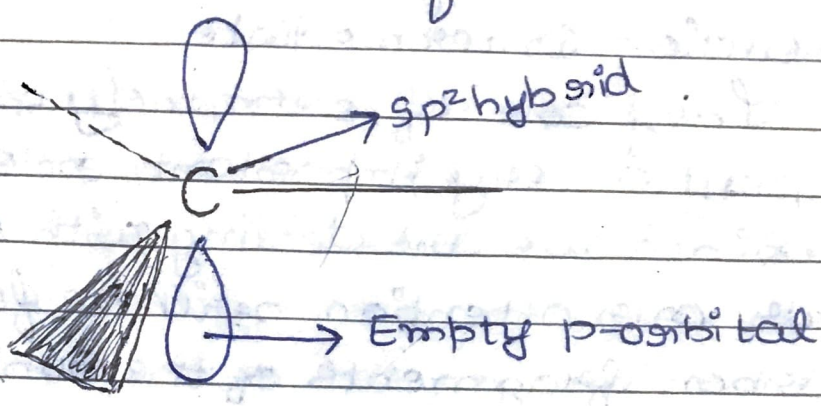 sp² hybrid.
C
Empty p-orbital